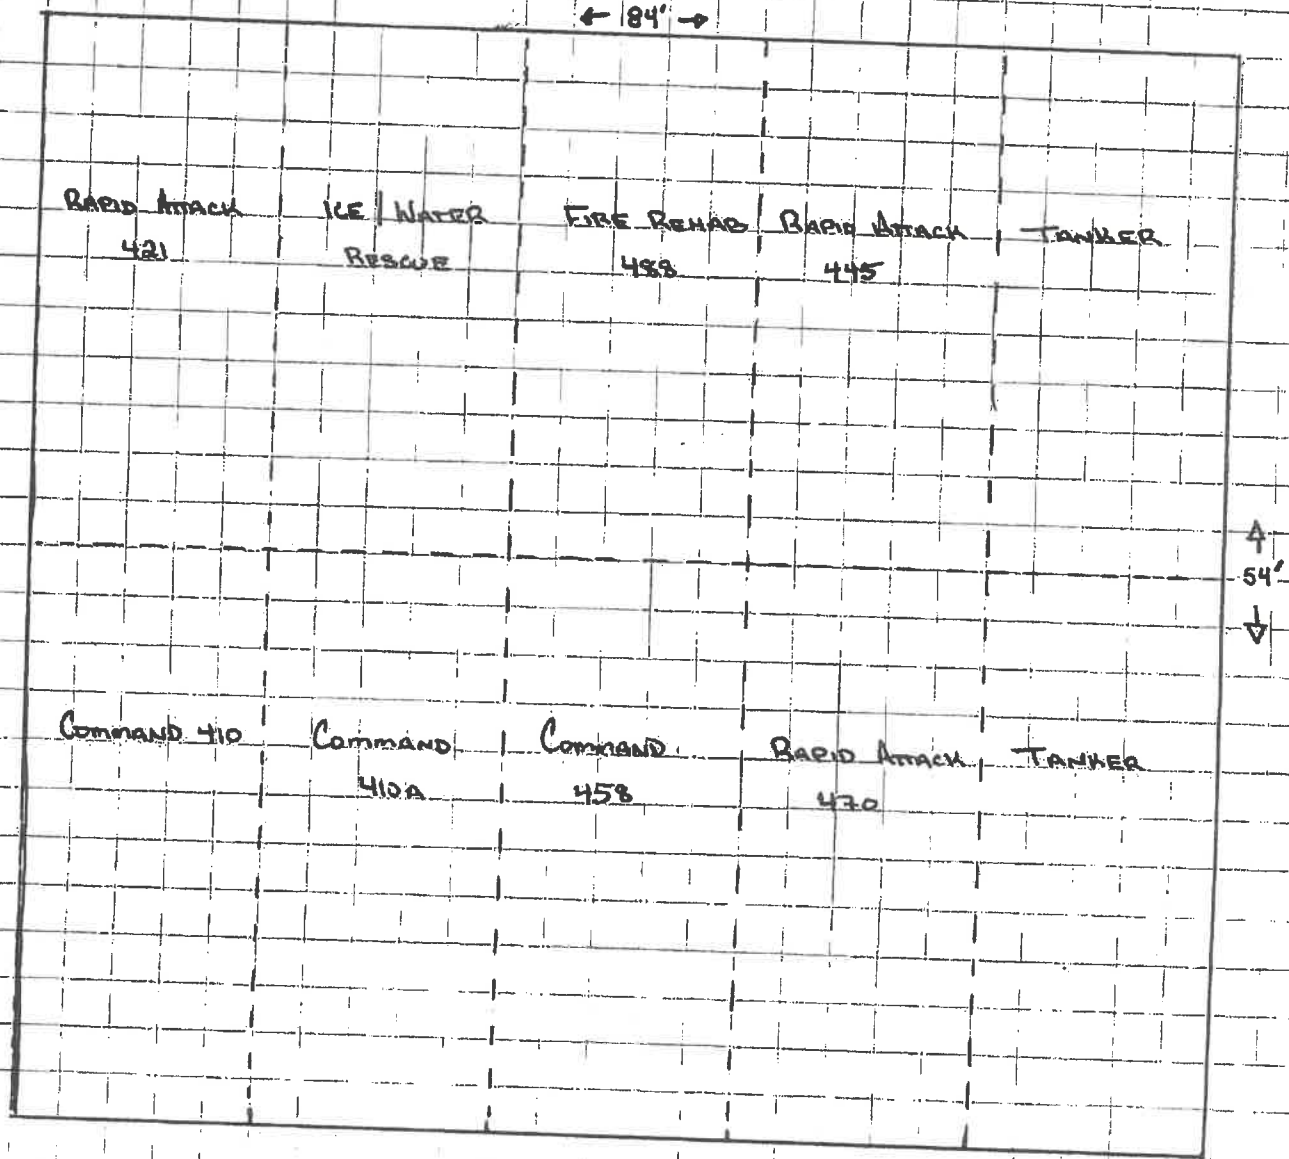 ← 84' →
RAPID ATTACK
421
ICE / WATER
RESCUE
FIRE REHAB
488
RAPID ATTACK
445
TANKER
54'
COMMAND 410
COMMAND
410A
COMMAND
458
RAPID ATTACK
470
TANKER